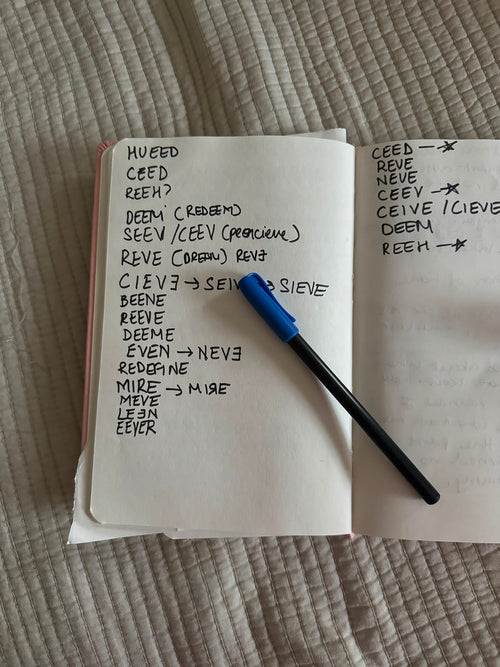 HUEED
CEED
REEH?
DEEM (REDEEM)
SEEV / CEEV (percieve)
REVE (DREAM) REVƎ
CIEVƎ → SEIV → SIEVE
BEENE
REEVE
DEEME
EVEN → NEVƎ
REDEFINE
MIRE → MIRE
MEVE
LEEN
EEVER
CEED — ★
REVE
NEVE
CEEV — ★
CEIVE / CIEVE
DEEM
REEH — ★